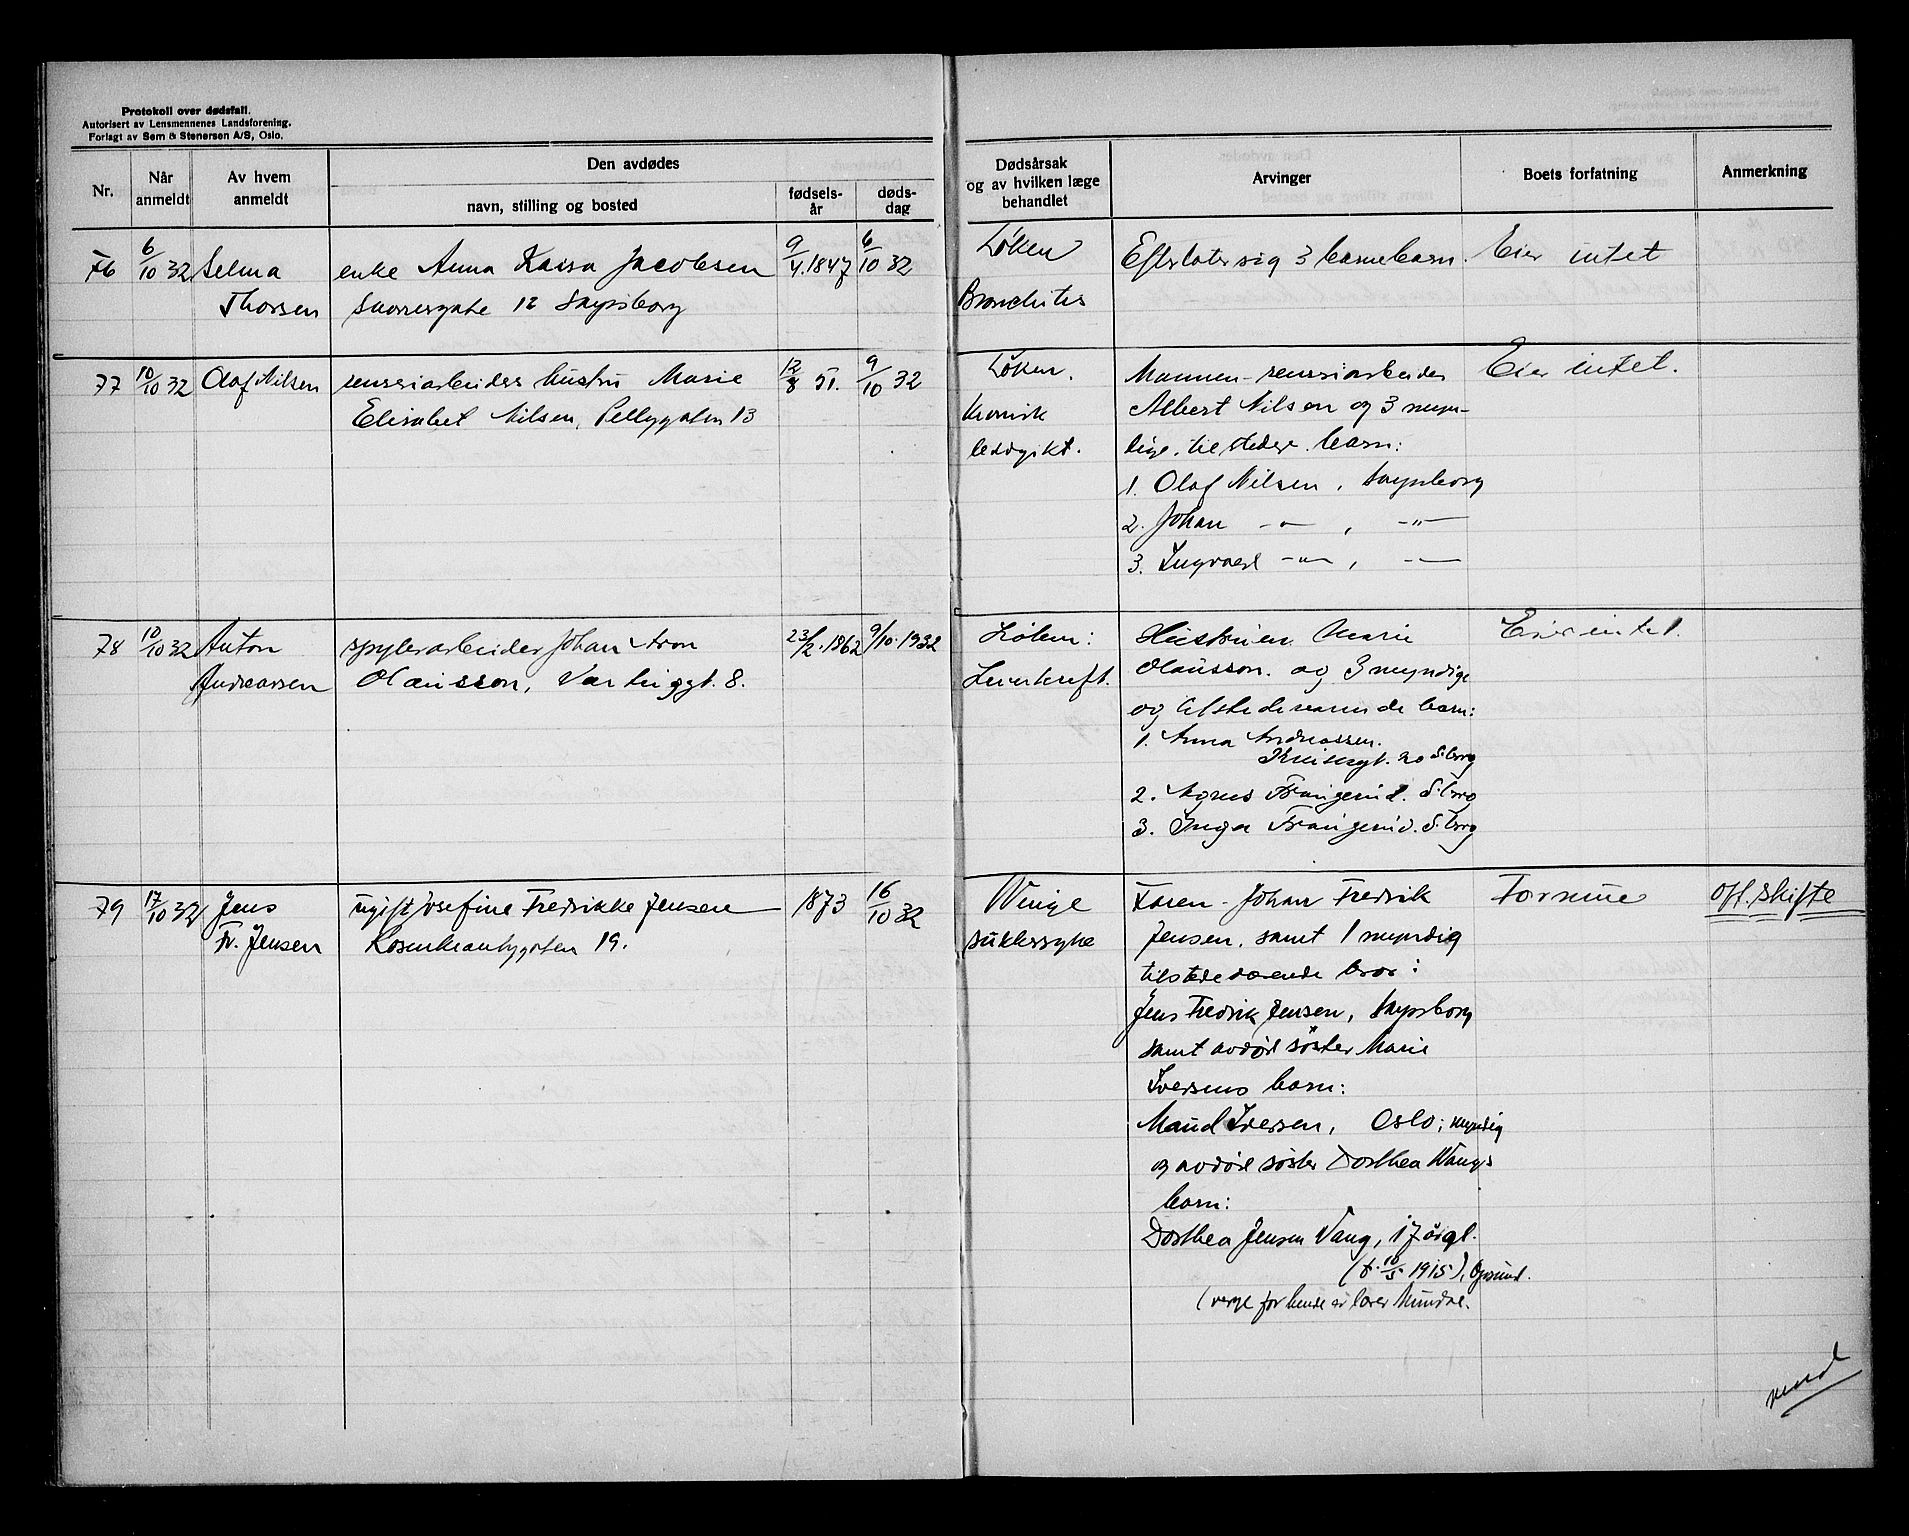 Protokoll over dødsfall.
Autorisert av Lensmennenes Landsforening.
Forlagt av Sem & Stenersen A/S, Oslo.
Nr.
Når anmeldt
Av hvem anmeldt
Den avdødes
navn, stilling og bosted
fødselsår
dødsdag
Dødsårsak
og av hvilken læge
behandlet
Arvinger
Boets forfatning
Anmerkning
76 6/10 32 Selma enke Anna Kaisa Jacobsen 9/4.1847 6/10 32 Løken Efterlater sig 3 barnebarn. Eier intet
Thorsen 12 Sarpsborg Bronchitis
77 10/10 32 Olaf Nilsen renseriarbeider hustru Marie 12/8 51. 9/10 32 Løken. Mannen - renseriarbeider Eier intet.
Elisabet Nilsen, Pellygaten 13 kronisk Albert Nilsen og 3 myn-
leddgikt. dige, tilstedev. barn:
1. Olaf Nilsen, Sarpsborg
2. Johan -"- , -"-
3. Ingvald -"- , -"-
78 10/10 32 Anton arbeider Johan Aron 23/2.1862 9/10.1932 Løken: Hustruen Marie Eier intet.
Andreassen Olausson, 8. Leverkreft. Olausson. og 3 myndige
og tilstedeværende barn:
1. Anna Andreassen.
20 S.borg
2. Agnes S.borg
3. Inga S.borg
79 17/10 32 Jens ugift Josefine Fredrikke Jensen 1873 16/10 32 Winge Faren - Johan Fredrik Formue Off. skifte
Fr. Jensen Rosenkrantzgaten 19. sukkersyke Jensen, samt 1 myndig
tilstedeværende bror:
Jens Fredrik Jensen, Sarpsborg
samt avdøde søster Marie
Iversens barn:
Maud Iversen, Oslo; myndig
og avdøde søster Dorthea Wangs
barn:
Dorthea Jensen Vang, 17 år gl.
(f. 10/5 1915),
(verge for hende er lærer